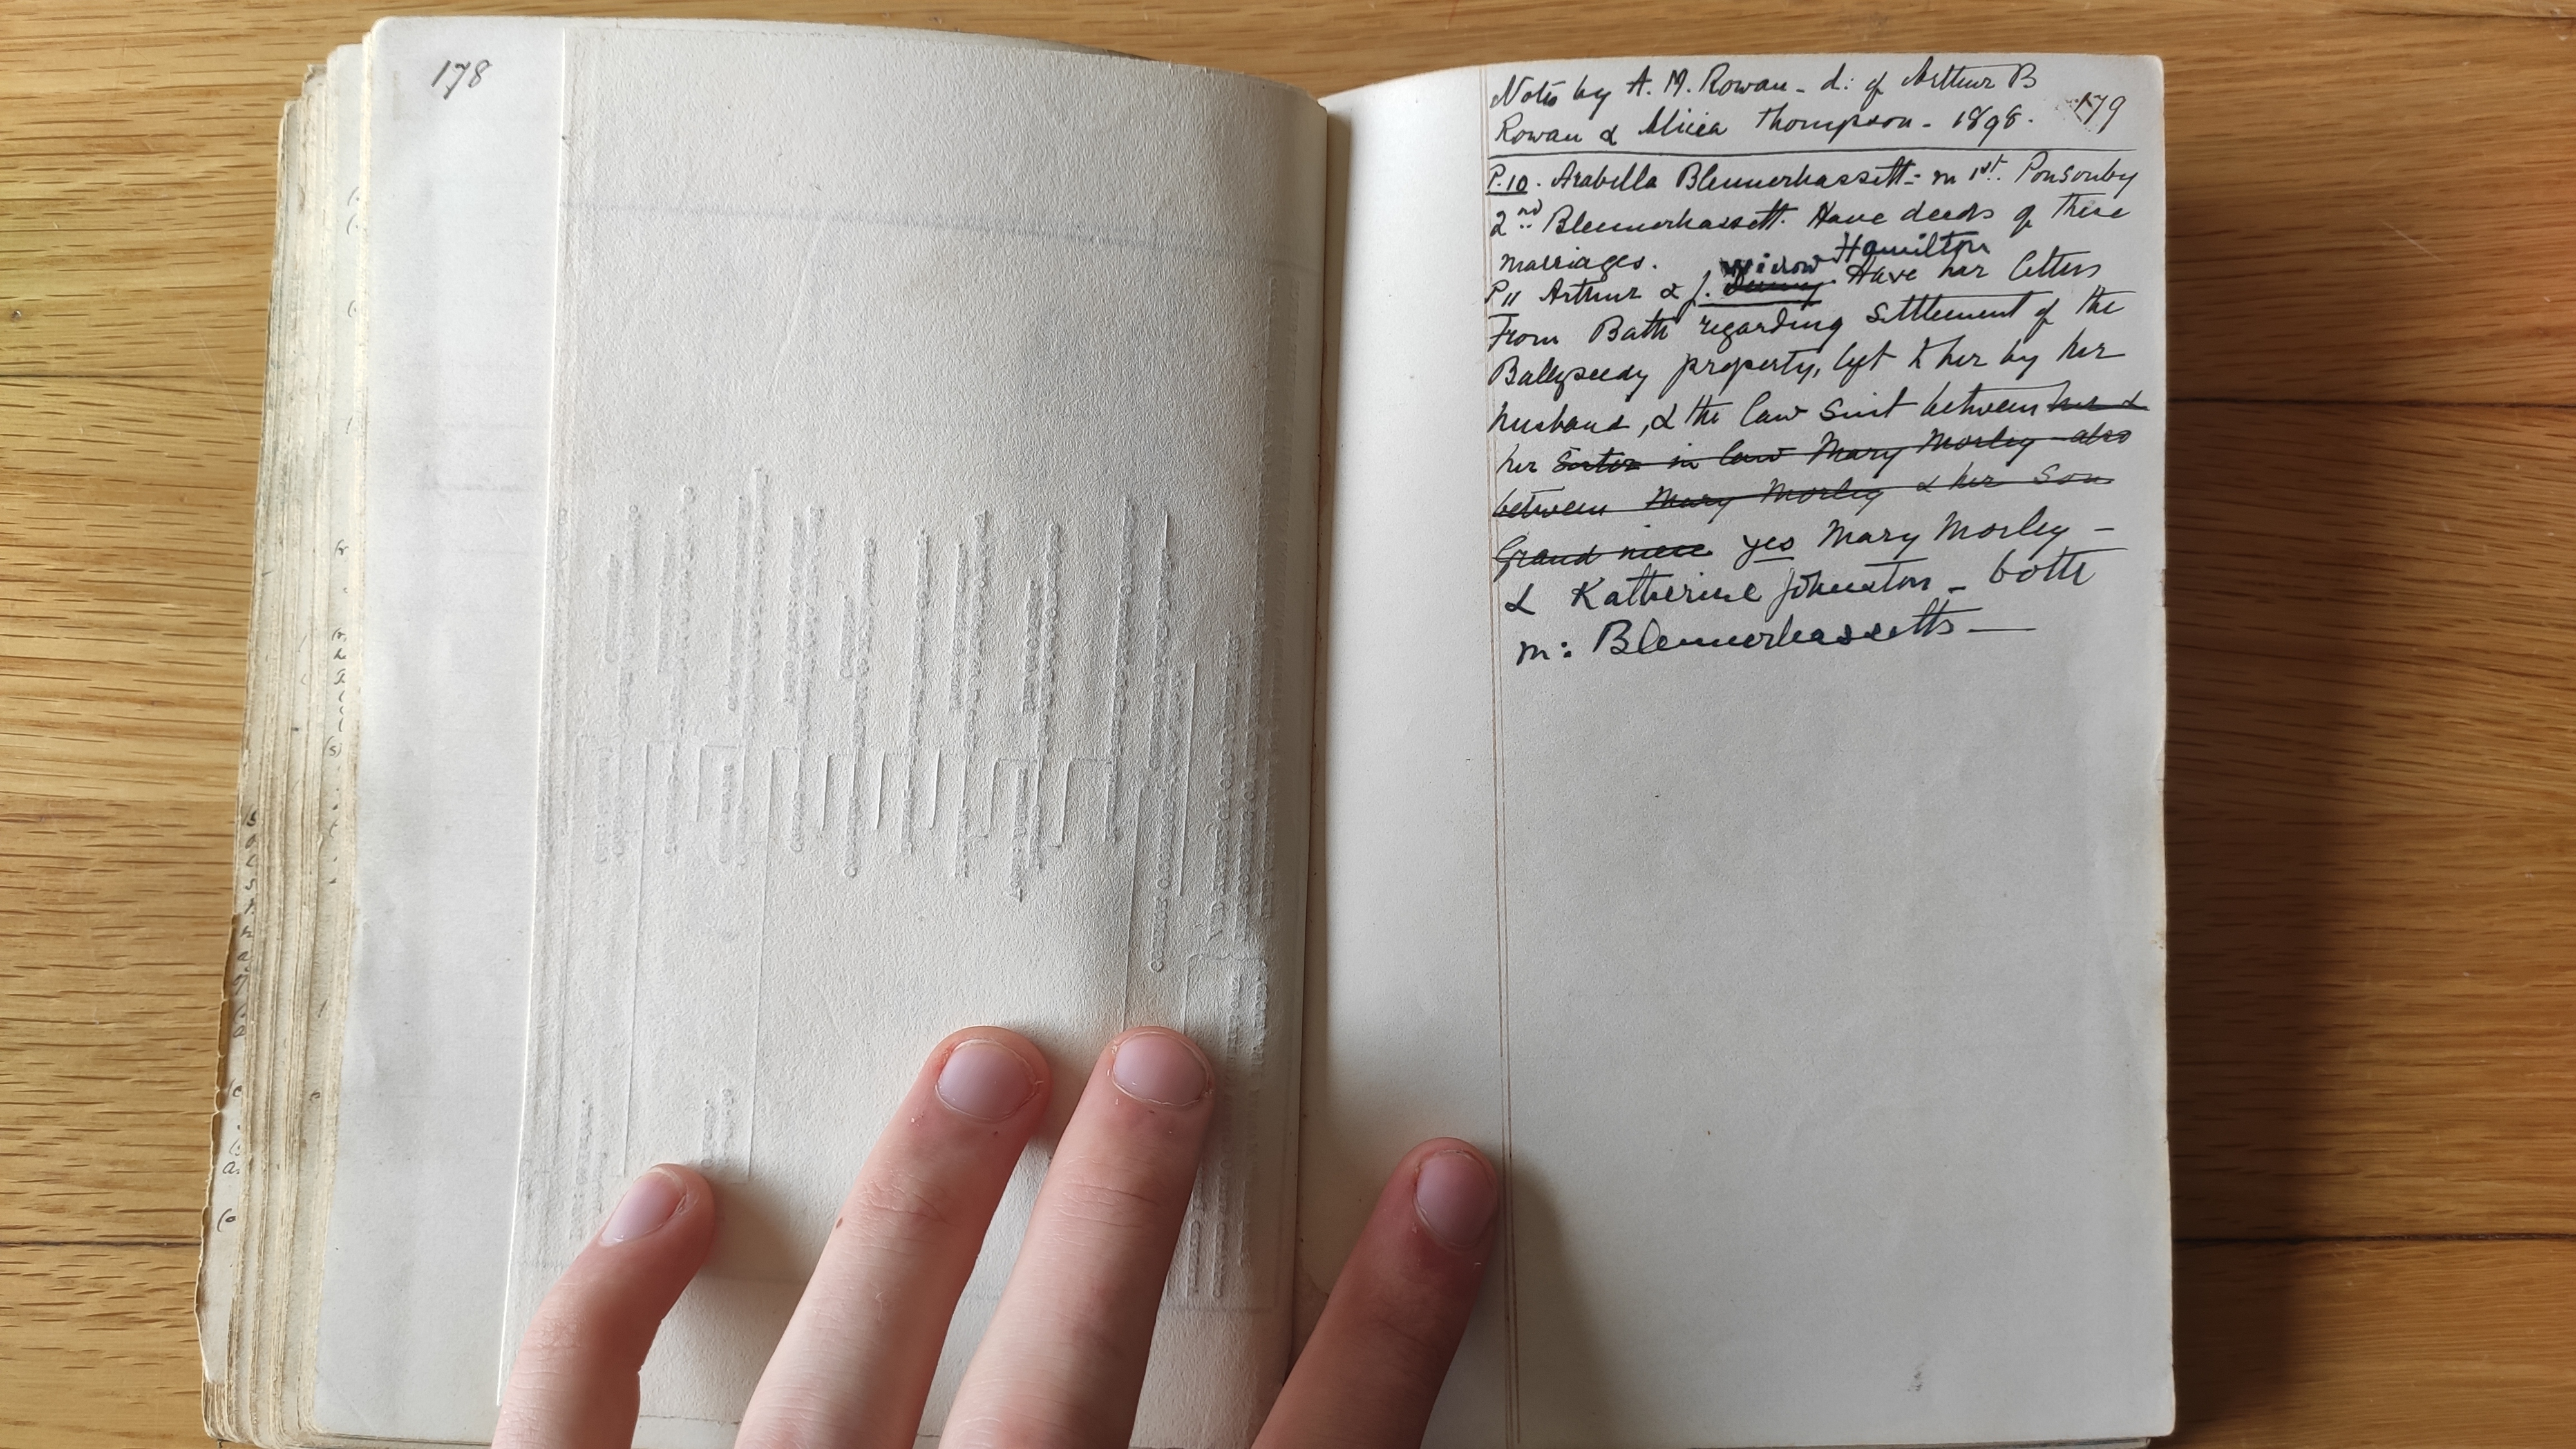 178
Notes by A. M. Rowan - d: of Arthur B
Rowan & Alicia Thompson - 1898. 179
P.10. Arabella Blennerhassett - m 1st. Ponsonby
2nd Blennerhassett. Have deeds of these
marriages.
widow Hamilton
P 11 Arthur & J. Denny. Have her letters
From Bath regarding Settlement of the
Ballyseedy property, left to her by her
husband, & the law Suit between her &
her Sister in law Mary Morley also
between Mary Morley & her Son
Grand niece yes Mary Morley -
& Katherine Johnston - both
m: Blennerhassetts -